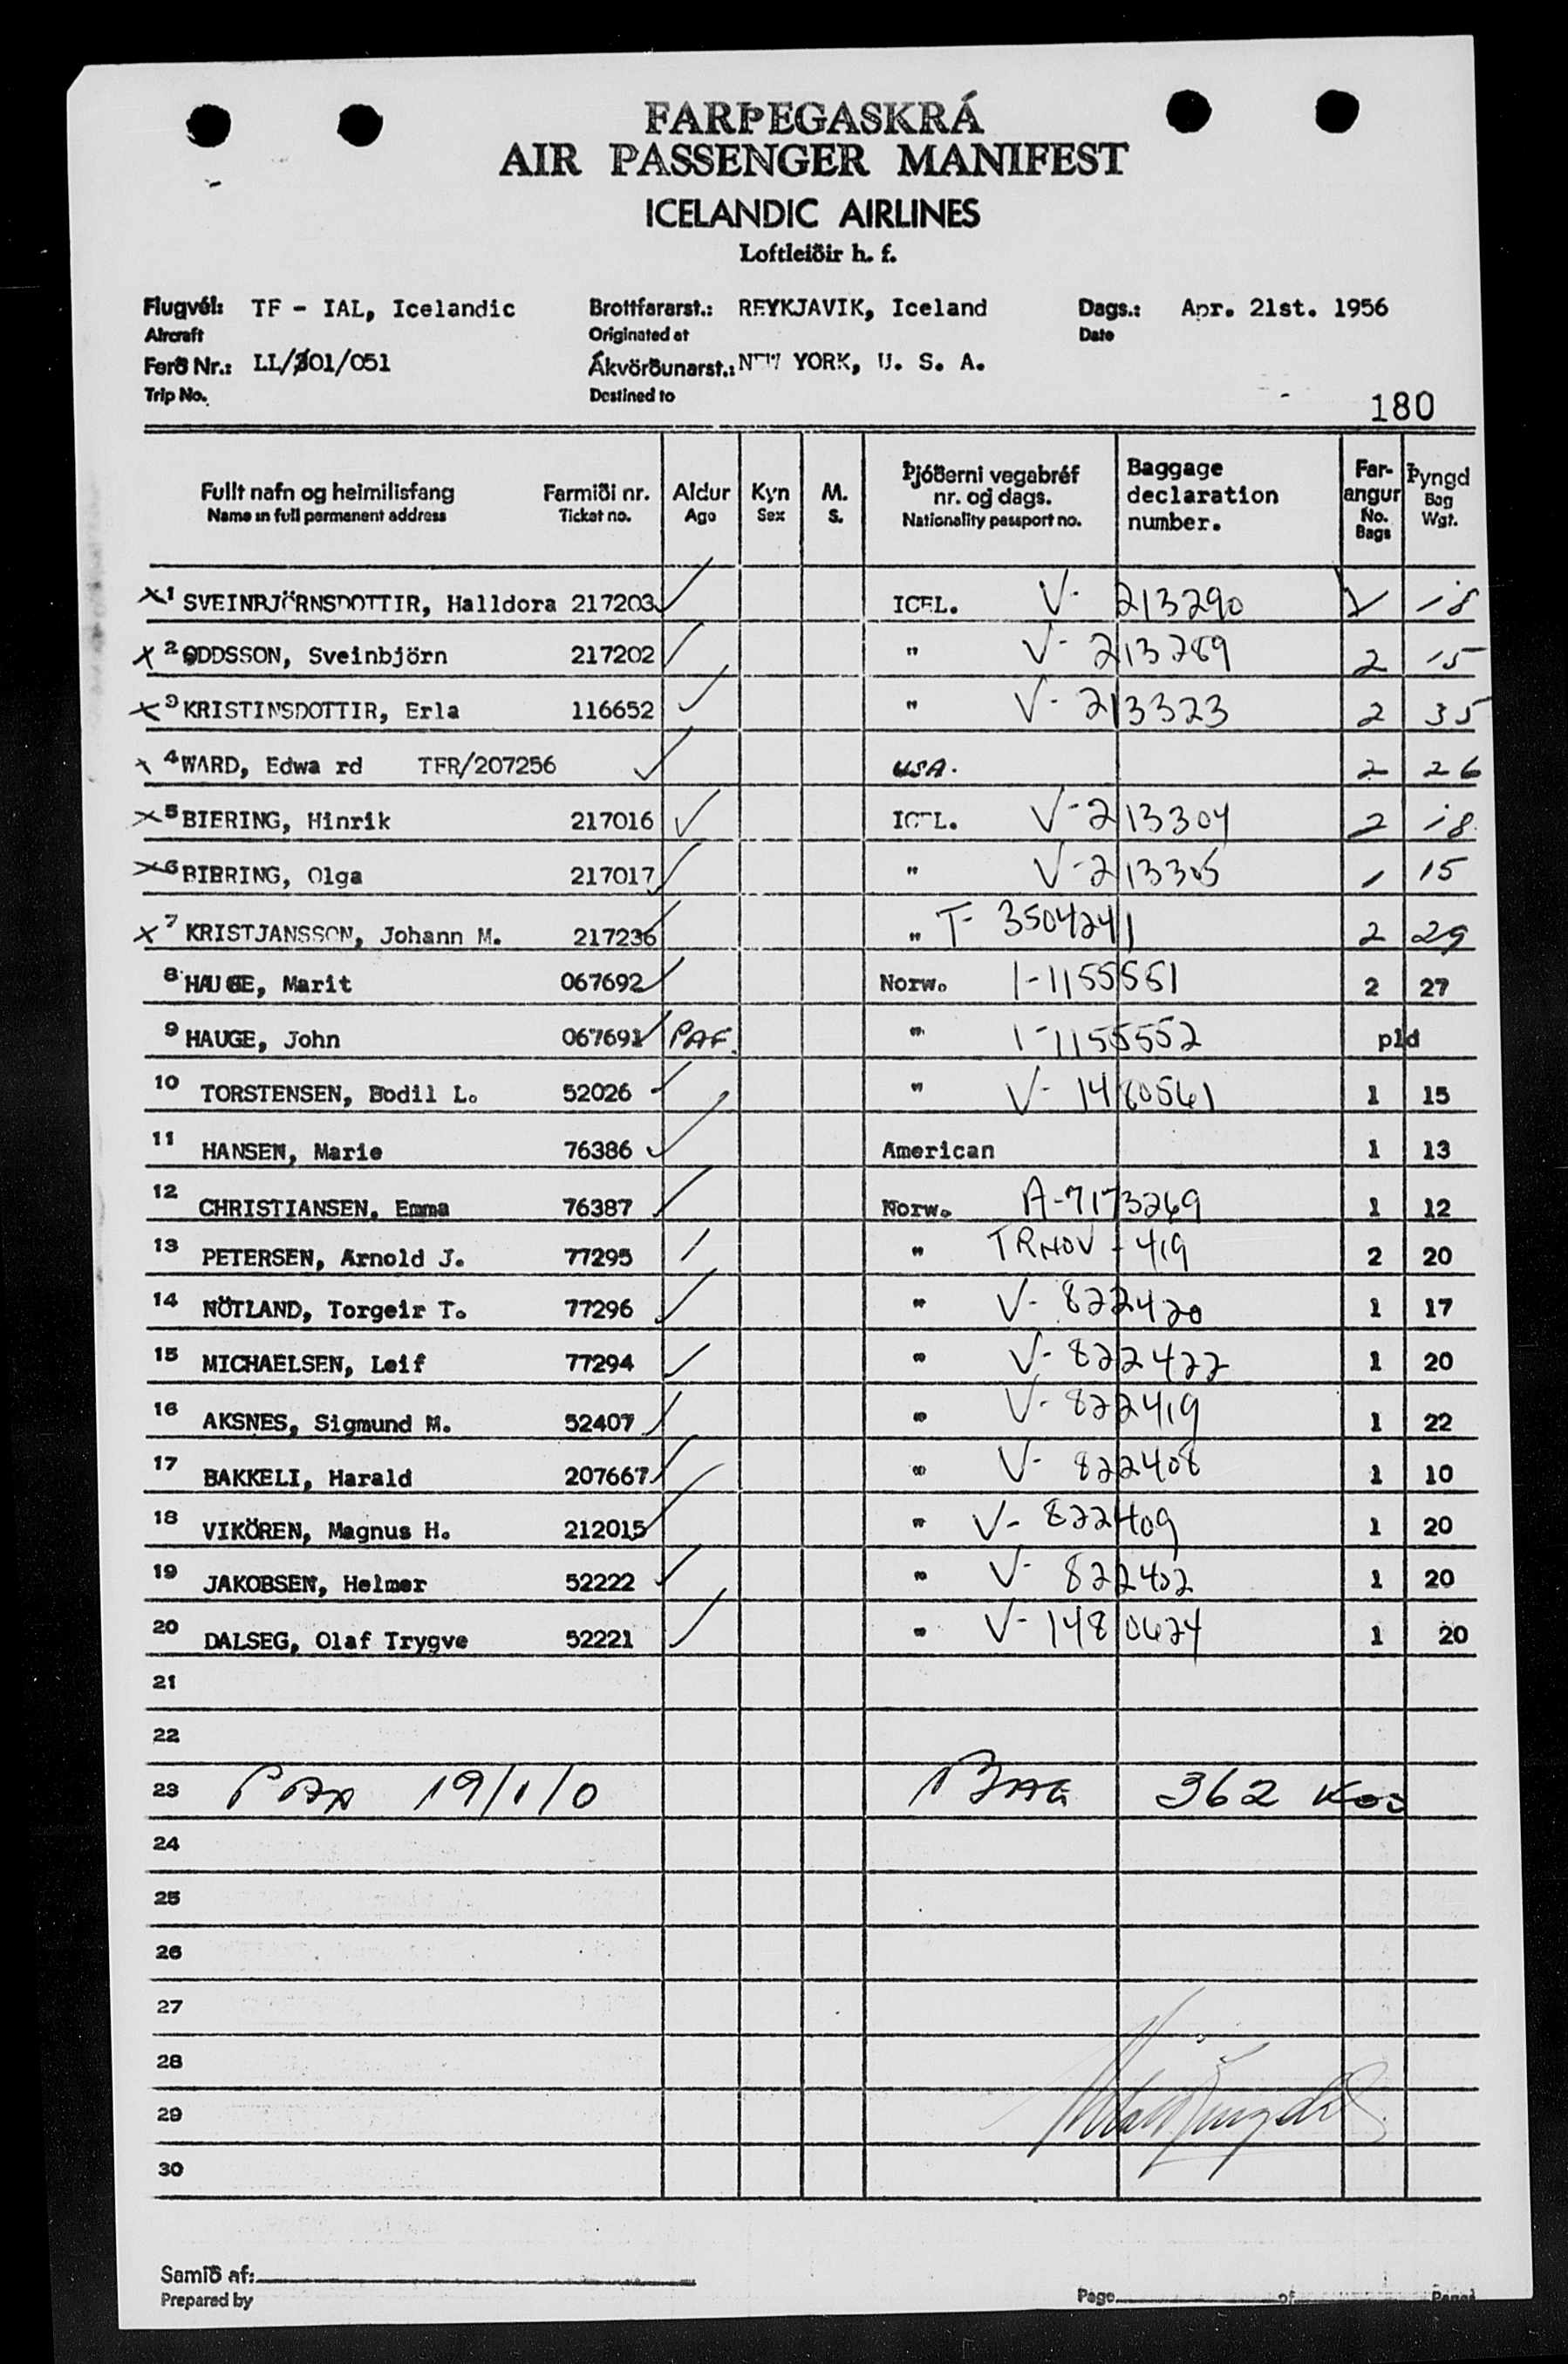 FARÞEGASKRÁ
AIR PASSENGER MANIFEST
ICELANDIC AIRLINES
Loftleiðir h. f.
Flugvél: TF - IAL, Icelandic Brottfararst.: REYKJAVIK, Iceland Dags.: Apr. 21st. 1956
Aircraft Originated at Date
Ferð Nr.: LL/301/051 Ákvörðunarst.: NEW YORK, U. S. A.
Trip No. Destined to
180
Fullt nafn og heimilisfang Farmiði nr. Aldur Kyn M. Þjóðerni vegabréf nr. og dags. Baggage declaration number. Far-angur Þyngd
Name in full permanent address Ticket no. Age Sex S. Nationality passport no. No. Bags Bag Wgt.
x 1 SVEINBJÖRNSDOTTIR, Halldora 217203 ICEL. V- 213290 18
x 2 ODDSSON, Sveinbjörn 217202 " V- 213289 2 15
x 3 KRISTINSDOTTIR, Erla 116652 " V- 213323 2 35
x 4 WARD, Edwa rd TFR/207256 USA. 2 26
x 5 BIERING, Hinrik 217016 ICEL. V-213304 2 18
x 6 BIERING, Olga 217017 " V-213305 1 15
x 7 KRISTJANSSON, Johann M. 217236 " T- 3504241 2 29
8 HAUGE, Marit 067692 Norw. 1-1155551 2 27
9 HAUGE, John 067691 PAF. " 1-1155552 pld
10 TORSTENSEN, Bodil L. 52026 " V- 1480561 1 15
11 HANSEN, Marie 76386 American 1 13
12 CHRISTIANSEN, Emma 76387 Norw. A-7173269 1 12
13 PETERSEN, Arnold J. 77295 " TRNOV - 419 2 20
14 NÖTLAND, Torgeir T. 77296 " V- 822420 1 17
15 MICHAELSEN, Leif 77294 " V- 822422 1 20
16 AKSNES, Sigmund M. 52407 " V- 822419 1 22
17 BAKKELI, Harald 207667 " V- 822408 1 10
18 VIKÖREN, Magnus H. 212015 " V- 822409 1 20
19 JAKOBSEN, Helmer 52222 " V- 822402 1 20
20 DALSEG, Olaf Trygve 52221 " V- 1480624 1 20
21
22
23 PAX 19/1/0 BAG 362 Kos
24
25
26
27
28
29
30
Samið af:
Prepared by Page of Pages